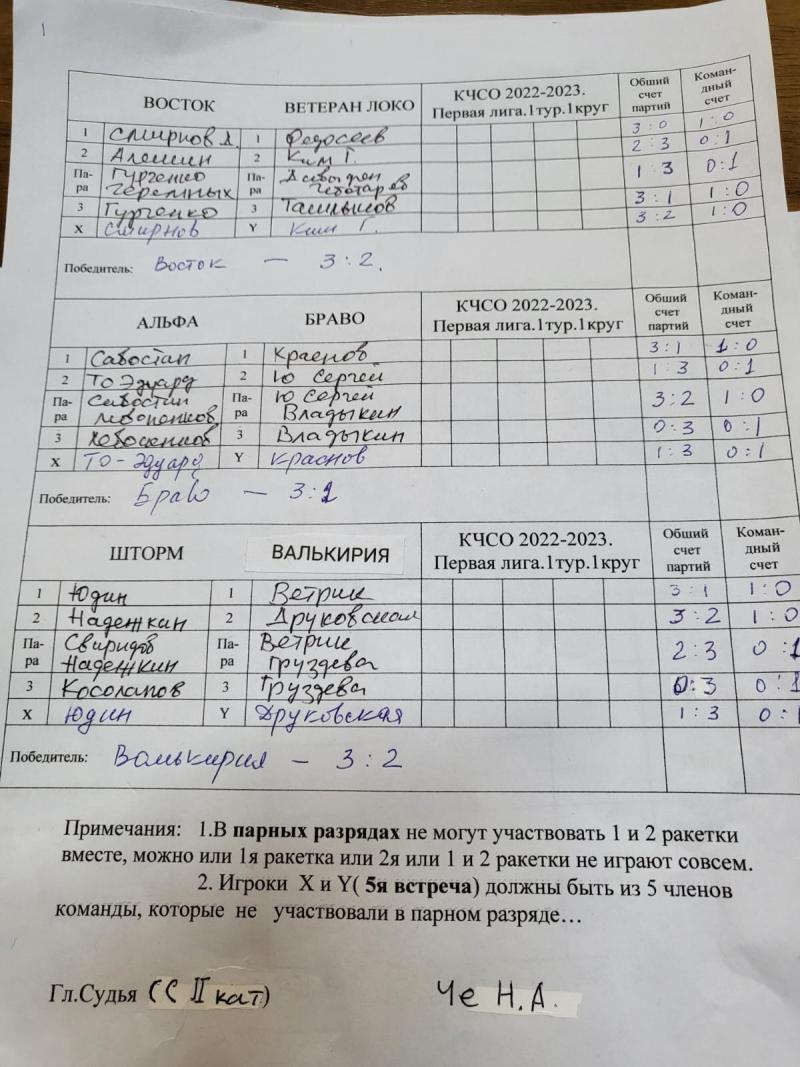 1
ВОСТОК ВЕТЕРАН ЛОКО КЧСО 2022-2023. Первая лига.1тур.1круг Общий счет партий Коман-дный счет
1 Смирнов А. 1 Федосеев 3:0 1:0
2 Алешин 2 Ким Г. 2:3 0:1
Па-ра Гурченко Па-ра 1:3 0:1
Черемных Чеботарев
3 Гурченко 3 3:1 1:0
X Смирнов Y Ким Г. 3:2 1:0
Победитель: Восток — 3:2.
АЛЬФА БРАВО КЧСО 2022-2023. Первая лига.1тур.1круг Общий счет партий Коман-дный счет
1 Савостин 1 Краснов 3:1 1:0
2 То Эдуард 2 Ю Сергей 1:3 0:1
Па-ра Савостин Па-ра Ю Сергей 3:2 1:0
Владыкин
3 3 Владыкин 0:3 0:1
X То-Эдуард Y Краснов 1:3 0:1
Победитель: Браво — 3:2
ШТОРМ ВАЛЬКИРИЯ КЧСО 2022-2023. Первая лига.1тур.1круг Общий счет партий Коман-дный счет
1 Юдин 1 Ветрик 3:1 1:0
2 Надежкин 2 Друковская 3:2 1:0
Па-ра Свиридов Па-ра Ветрик 2:3 0:1
Надежкин Груздева
3 Косолапов 3 Груздева 0:3 0:1
X Юдин Y Друковская 1:3 0:1
Победитель: Валькирия – 3:2
Примечания: 1.В парных разрядах не могут участвовать 1 и 2 ракетки
вместе, можно или 1я ракетка или 2я или 1 и 2 ракетки не играют совсем.
2. Игроки X и Y( 5я встреча) должны быть из 5 членов
команды, которые не участвовали в парном разряде…
Гл.Судья (СС II кат) Че Н.А.